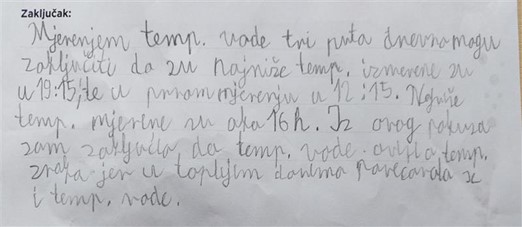 Zaključak:
Mjerenjem temp. vode tri puta dnevno mogu
zaključiti da su najniže temp. izmerene su
u 19:15, te u prvom mjerenju u 12:15. Najviše
temp. mjerene su oko 16h. Iz ovog pokusa
sam zaključila da temp. vode ovisi a temp.
zraka jer u toplijim danima povećavala se
i temp. vode.